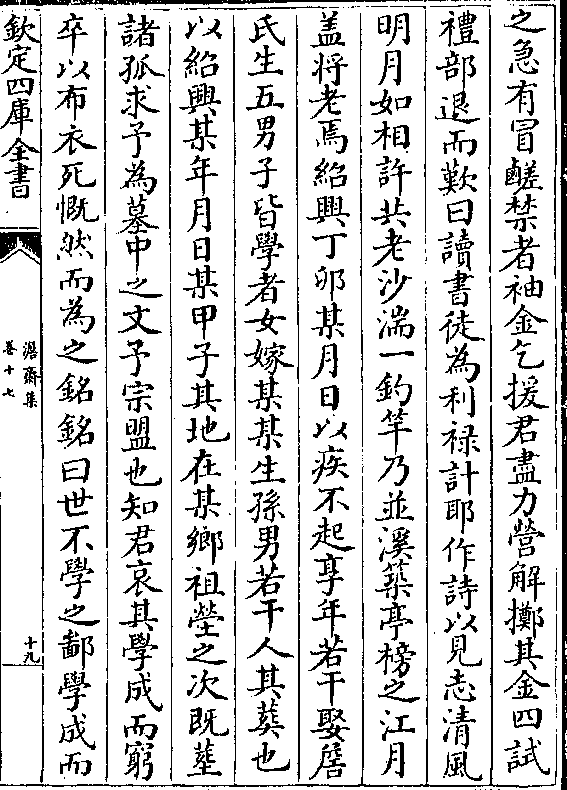 之急有冒鹺禁者袖金乞援君盡力營解擲其金四試
禮部退而歎曰讀書徒為利祿計耶作詩以見志清風
明月如相許共老沙湍一釣竿乃並溪築亭榜之江月
盖将老焉紹興丁卯某月日以疾不起享年若干娶詹
氏生五男子皆學者女嫁某某生孫男若干人其葬也
以紹興某年月日某甲子其地在某鄉祖塋之次既塟
諸孤求予為墓中之文予宗盟也知君哀其學成而窮
卒以布衣死慨然而為之銘銘曰世不學之鄙學成而
欽定四庫全書
澹齋集
卷十七
十九